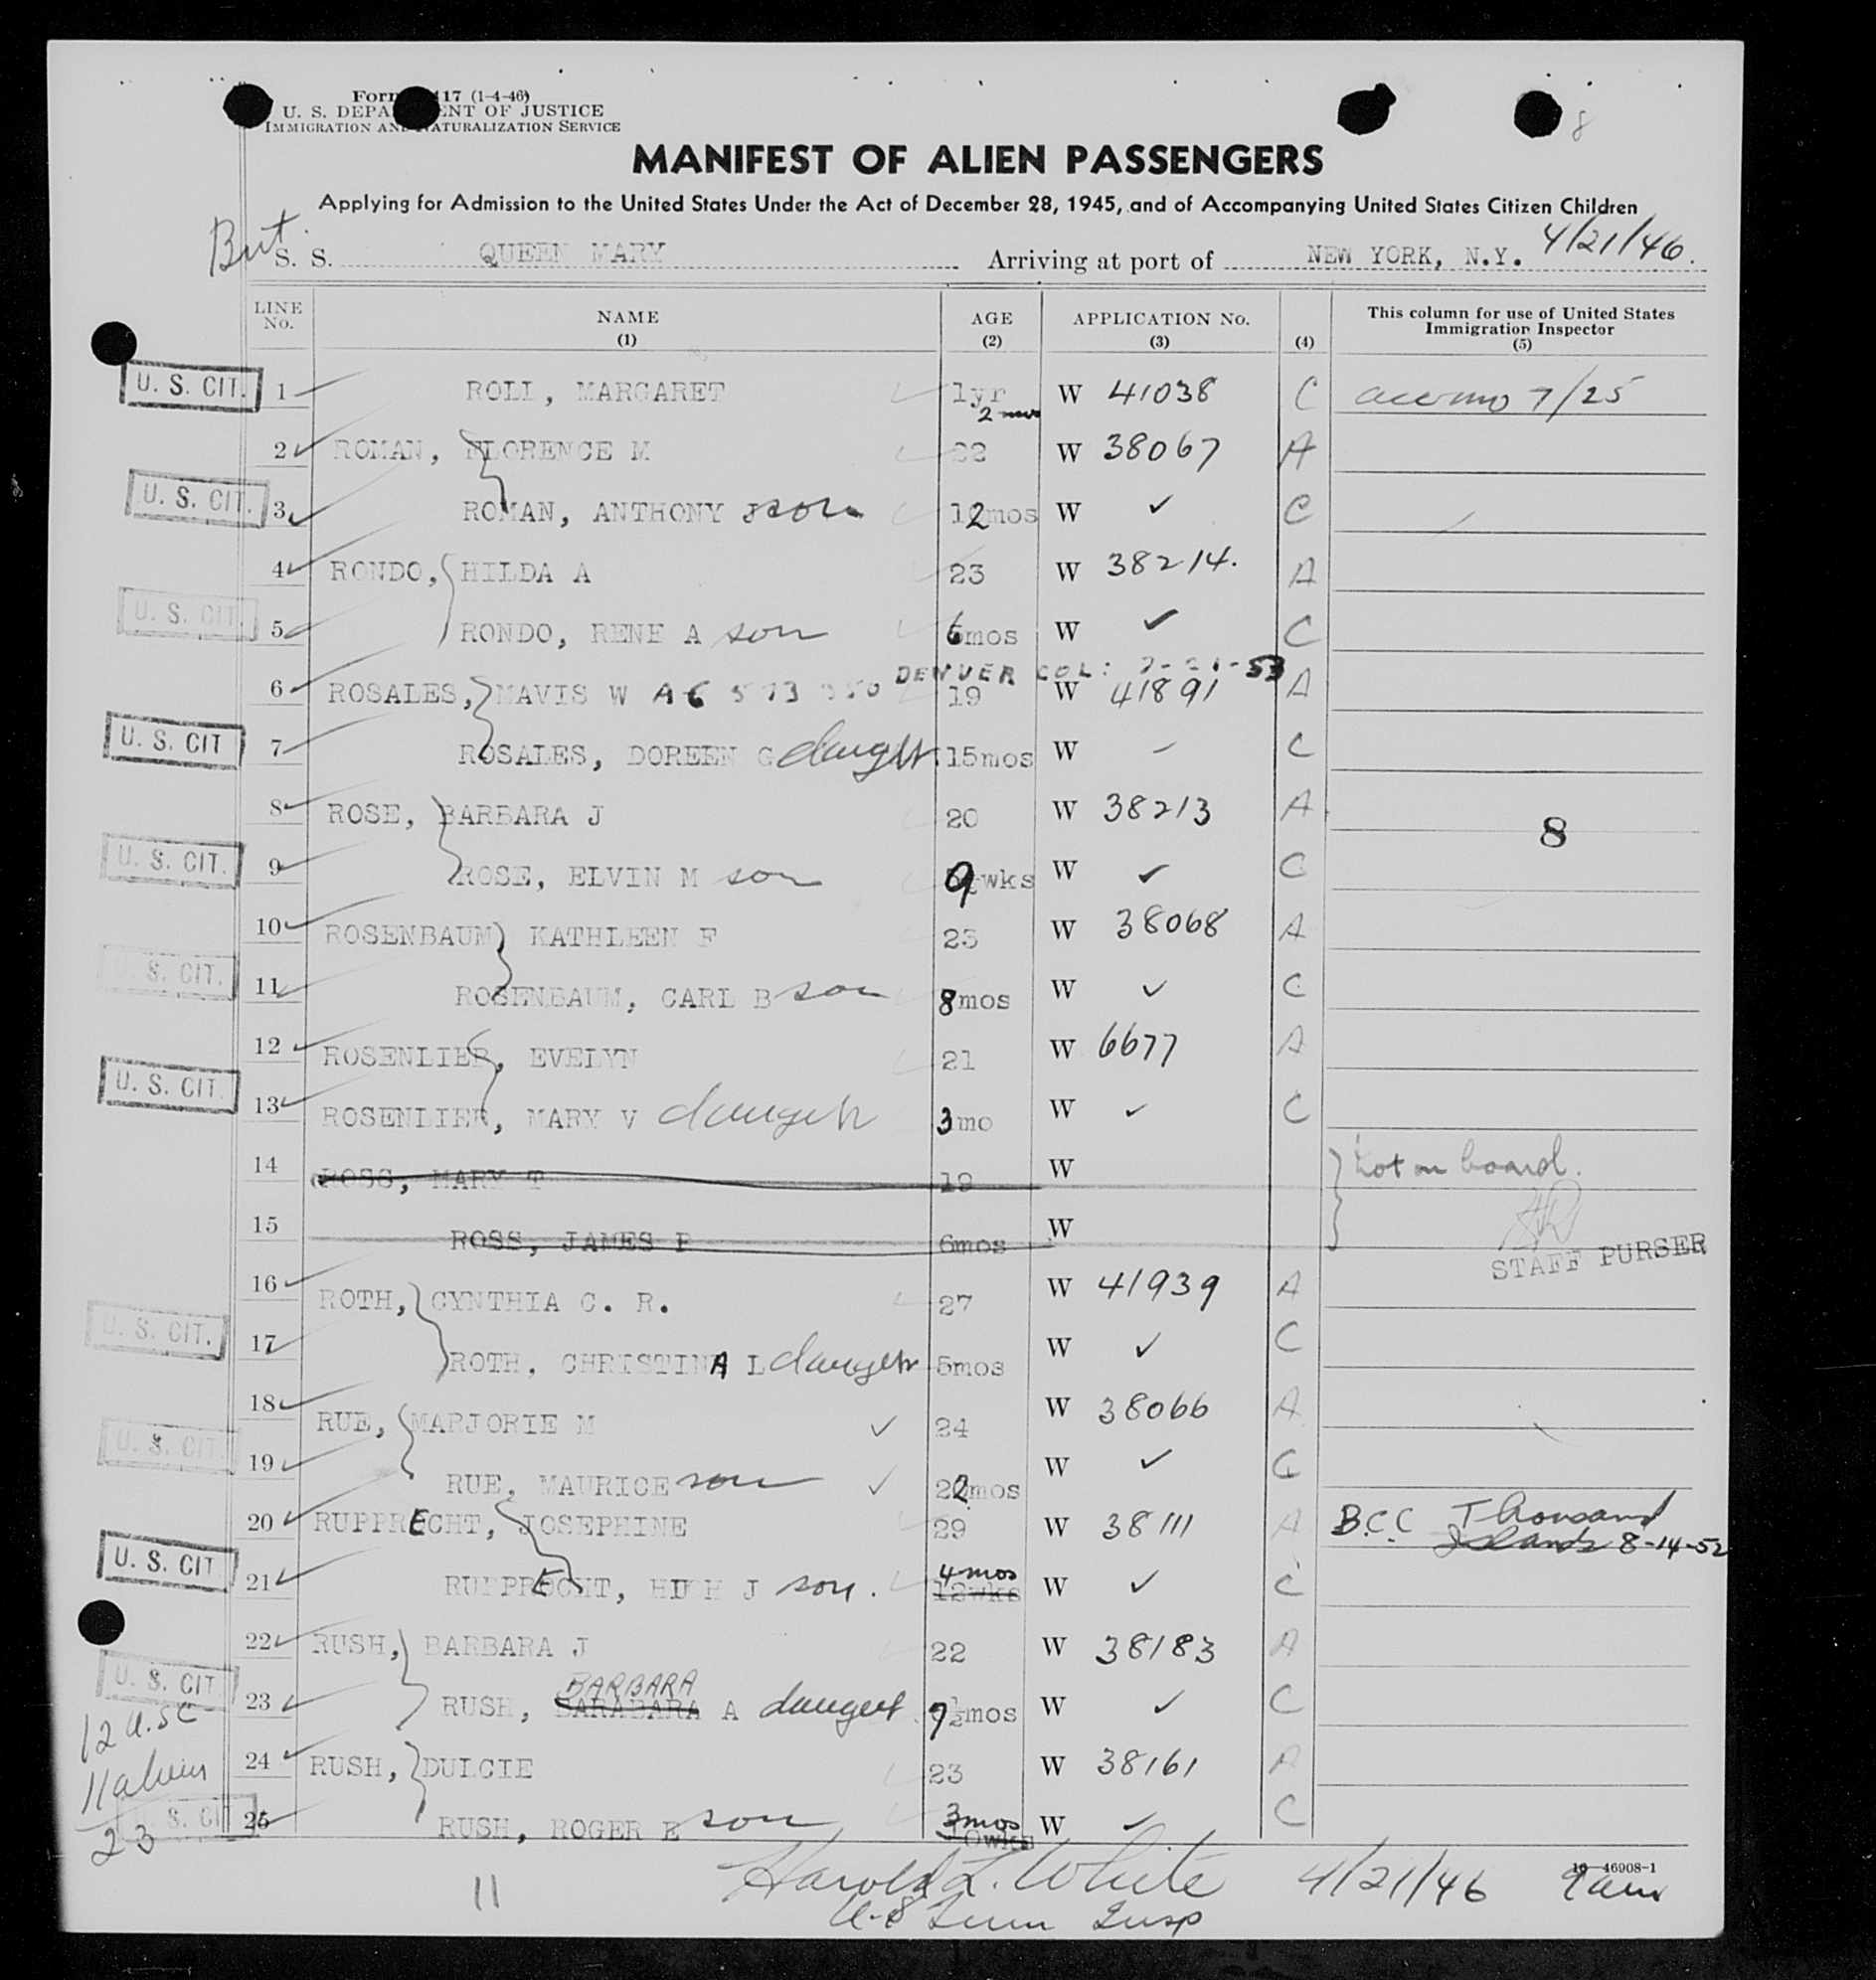 Form 417 (1-4-46)
U. S. DEPA ENT OF JUSTICE
IMMIGRATION AND NATURALIZATION SERVICE
8
MANIFEST OF ALIEN PASSENGERS
Applying for Admission to the United States Under the Act of December 28, 1945, and of Accompanying United States Citizen Children
Brit. S. S. QUEEN MARY Arriving at port of NEW YORK, N.Y. 4/21/46.
LINE No. NAME (1) AGE (2) APPLICATION No. (3) (4) This column for use of United States Immigration Inspector (5)
U. S. CIT. 1 ROLL, MARGARET 1yr 2 mos W 41038 C 7/25
2 ROMAN, FLORENCE M 22 W 38067 A
U. S. CIT. 3 ROMAN, ANTHONY J son 12mos W ✓ C
4 RONDO, HILDA A 23 W 38214. A
U. S. CIT. 5 RONDO, RENE A son 6mos W ✓ C
DENVER COL: 53
6 ROSALES, MAVIS W A6 19 W 41891 A
U. S. CIT 7 ROSALES, DOREEN G daught 15mos W C
8 ROSE, BARBARA J 20 W 38213 A
8
U. S. CIT. 9 ROSE, ELVIN M son 9 wks W ✓ C
10 ROSENBAUM, KATHLEEN F 23 W 38068 A
U. S. CIT. 11 ROSENBAUM, CARL B son 8mos W ✓ C
12 ROSENLIER, EVELYN 21 W 6677 A
U. S. CIT. 13 ROSENLIER, MARY V daughtr 3mo W ✓ C
14 ROSS, MARY T 19 W not on board.
15 ROSS, JAMES P 6mos W
STAFF PURSER
16 ROTH, CYNTHIA C. R. 27 W 41939 A
U. S. CIT. 17 ROTH, CHRISTINA L daughtr 5mos W ✓ C
18 RUE, MARJORIE M ✓ 24 W 38066 A
U. S. CIT. 19 RUE, MAURICE son ✓ 22mos W ✓ C
20 RUPPRECHT, JOSEPHINE 29 W 38111 A B.C.C Thousand Islands 8-14-52
U. S. CIT 21 RUPPRECHT, HUGH J son. 4 mos 12wks W ✓ C
22 RUSH, BARBARA J 22 W 38183 A
BARBARA
U. S. CIT 23 RUSH, BARABARA A daught 9½mos W ✓ C
12 U.S.C
24 RUSH, DULCIE 23 W 38161 A
11 alien
U. S. CIT 25 RUSH, ROGER E son 3mos 10wks W ✓ C
23
16—46908-1
Harold L. White 4/21/46 9am
11
U.S Imm Insp